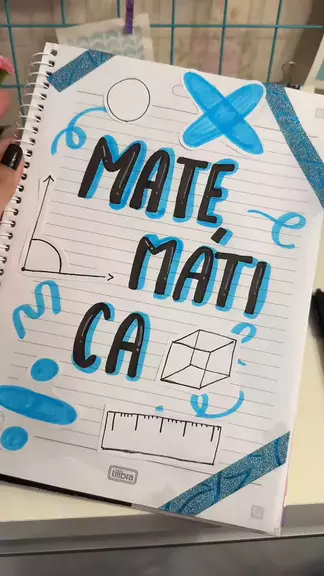 MATE
MÁTI
CA
tilibra